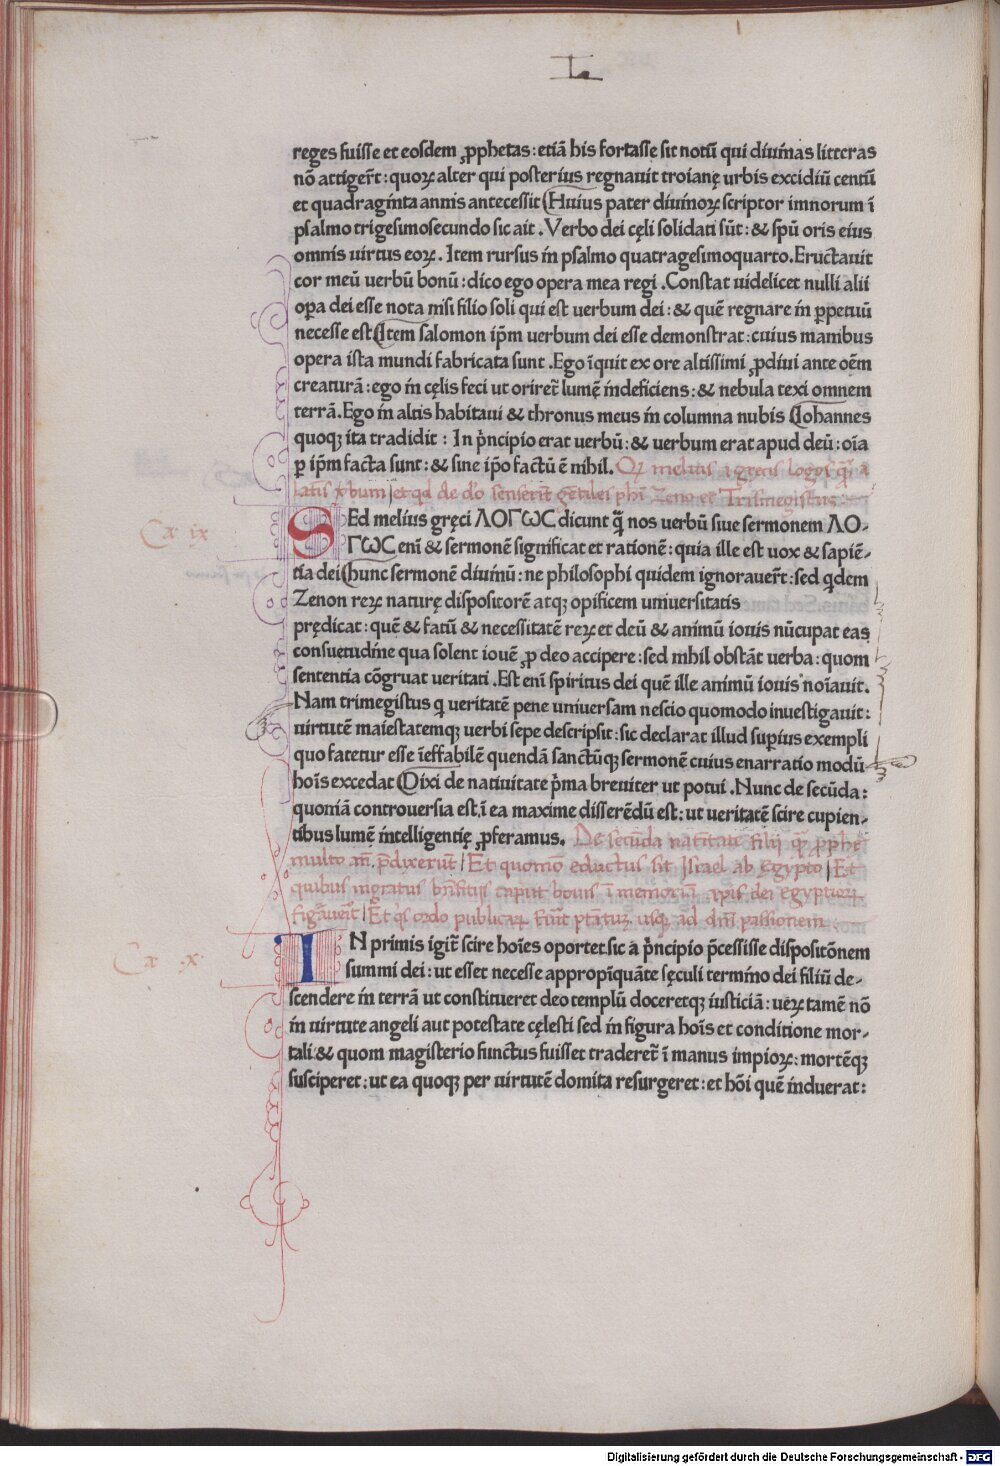 L.
reges fuisse et eosdem ꝓphetas: etiā his fortasse sit notū qui diuinas litteras
nō attiger̄t: quoꝝ alter qui posterius regnauit troianę urbis excidiū centū
et quadraginta annis antecessit Huius pater diuinoꝝ scriptor imnorum ī
psalmo trigesimosecundo sic ait . Verbo dei cęli solidati sūt: & spū oris eius
omnis uirtus eoꝝ. Item rursus in psalmo quatragesimoquarto. Eructauit
cor meū uerbū bonū: dico ego opera mea regi . Constat uidelicet nulli alii
oꝑa dei esse nota nisi filio soli qui est uerbum dei: & quē regnare in ꝑpetuū
necesse est Item salomon ip̄m uerbum dei esse demonstrat: cuius manibus
opera ista mundi fabricata sunt . Ego īquit ex ore altissimi ꝓdiui ante oēm
creaturā: ego in cęlis feci ut oriret̄ lumē indeficiens: & nebula texi omnem
terrā. Ego in altis habitaui & thronus meus in columna nubis Iohannes
quoqꝫ ita tradidit : In p̄ncipio erat uerbū: & uerbum erat apud deū: oīa
ꝑ ip̄m facta sunt: & sine ip̄o factū ē nihil. Qꝫ melius a grecis logos qͣꝫ a
latīs ūbum et qd de dō senserīt gentiles phī Zeno et Trismegistus
Ca ix
SEd melius gręci ΛΟΓωC dicunt qͣ̄ nos uerbū siue sermonem ΛΟ-
ΓωC enī & sermonē significat et rationē: quia ille est uox & sapiē-
tia dei hunc sermonē diuinū: ne philosophi quidem ignorauer̄t: sed qͥdem
Zenon reꝝ naturę dispositorē atqꝫ opificem uniuersitatis
prędicat: quē & fatū & necessitatē reꝝ et deū & animū iouis nūcupat eas
consuetudīne qua solent iouē ꝓ deo accipere: sed nihil obstāt uerba: quom
sententia cōgruat ueritati . Est enī spiritus dei quē ille animū iouis noīauit.
Nam trimegistus qͥ ueritatē pene uniuersam nescio quomodo inuestigauit:
uirtutē maiestatemqꝫ uerbi sepe descripsit: sic declarat illud suꝑius exempli
quo fatetur esse īeffabilē quendā sanctūqꝫ sermonē cuius enarratio modū
hoīs excedat Dixi de natiuitate p̄ma breuiter ut potui . Nunc de secūda:
quoniā controuersia est, ī ea maxime disserēdū est: ut ueritatē scire cupien-
tibus lumē intelligentię ꝓferamus. De secūda natiuitate filij qͣꝫ ꝓphē
multo añ. p̄dixerūt Et quomō eductus sit Israel ab Egypto Et
quibus ingratus bn̄fitijs caput bouis ī memoriā apis dei egyptioꝝ
figurauerūt Et qͥs ordo publicaꝝ fuit ptātuꝫ usqꝫ ad dnī passionem
Ca .x.
IN primis igit̄ scire hoīes oportet. sic a p̄ncipio p̄cessisse dispositōnem
summi dei: ut esset necesse appropīquāte sęculi termino dei filiū de-
scendere in terrā ut constitueret deo templū doceretqꝫ iusticiā: ueꝝ tamē nō
in uirtute angeli aut potestate cęlesti sed in figura hoīs et conditione mor-
tali & quom magisterio functus fuisset traderet̄ ī manus impioꝝ: mortēqꝫ
susciperet: ut ea quoqꝫ per uirtutē domita resurgeret: et hōi quē induerat:
Digitalisierung gefördert durch die Deutsche Forschungsgemeinschaft - DFG